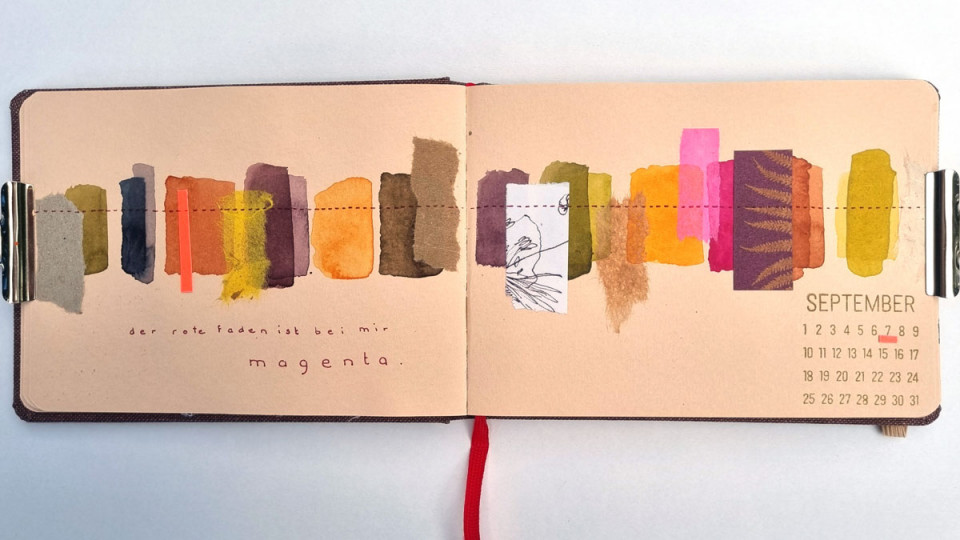 der rote Faden ist bei mir
magenta.
SEPTEMBER
1 2 3 4 5 6 7 8 9
10 11 12 13 14 15 16 17
18 19 20 21 22 23 24
25 26 27 28 29 30 31